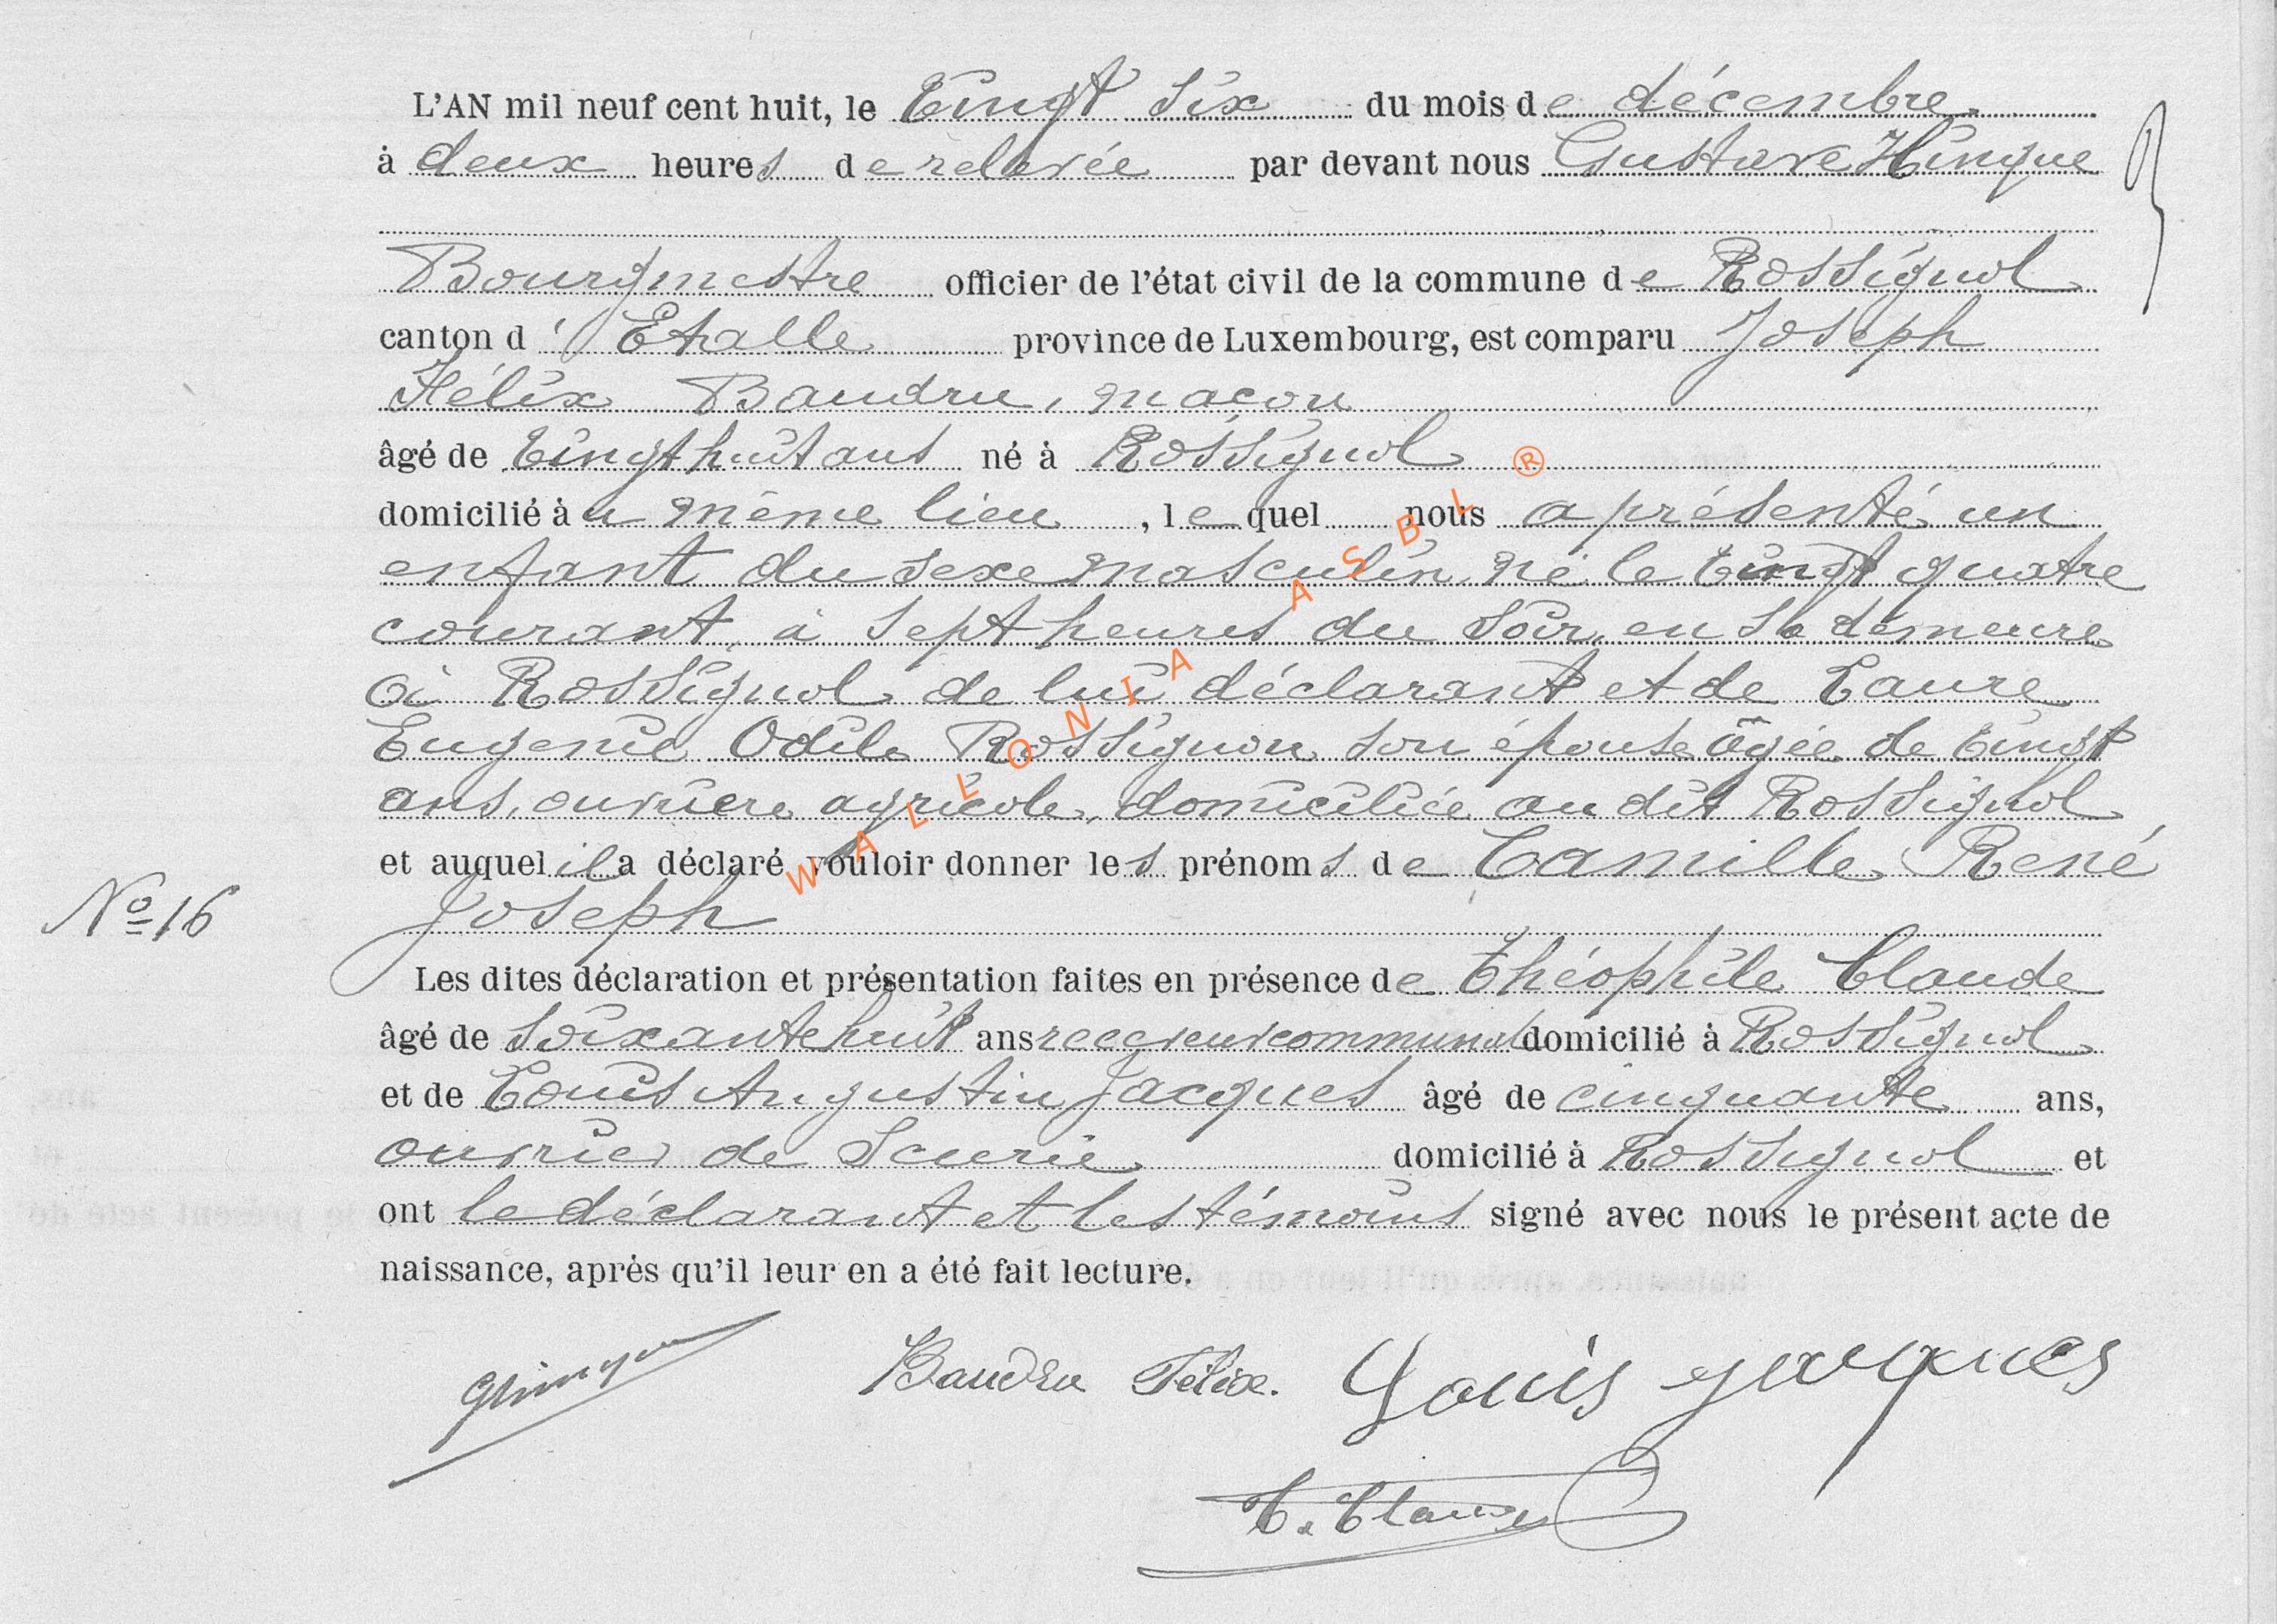 L'AN mil neuf cent huit, le Vingt Six du mois de décembre
à deux heures de relevée par devant nous Gustave Hinque
Bourgmestre officier de l'état civil de la commune de Rossignol
canton d'Etalle province de Luxembourg, est comparu Joseph
Félix Baudru, maçon
âgé de Vingt huit ans né à Rossignol
domicilié au même lieu, lequel nous a présenté un
enfant du sexe masculin, né le Vingt quatre
courant, à sept heures du soir, en sa demeure
à Rossignol de lui déclarant et de Laure
Eugenie Odile Rossignon son épouse âgée de Vingt
ans, ouvriere agricole, domiciliée au dit Rossignol
et auquel il a déclaré vouloir donner les prénoms de Camille René
Nº 16
Joseph
Les dites déclaration et présentation faites en présence de Théophile Claude
âgé de soixante huit ans receveur communal domicilié à Rossignol
et de Louis Augustin Jacques âgé de cinquante ans,
ouvrier de Scierie domicilié à Rossignol et
ont le déclarant et les témoins signé avec nous le présent acte de
naissance, après qu'il leur en a été fait lecture.
GHinque Baudru Félix. Louis Jacques
T. Claude
WALLONIA ASBL ®